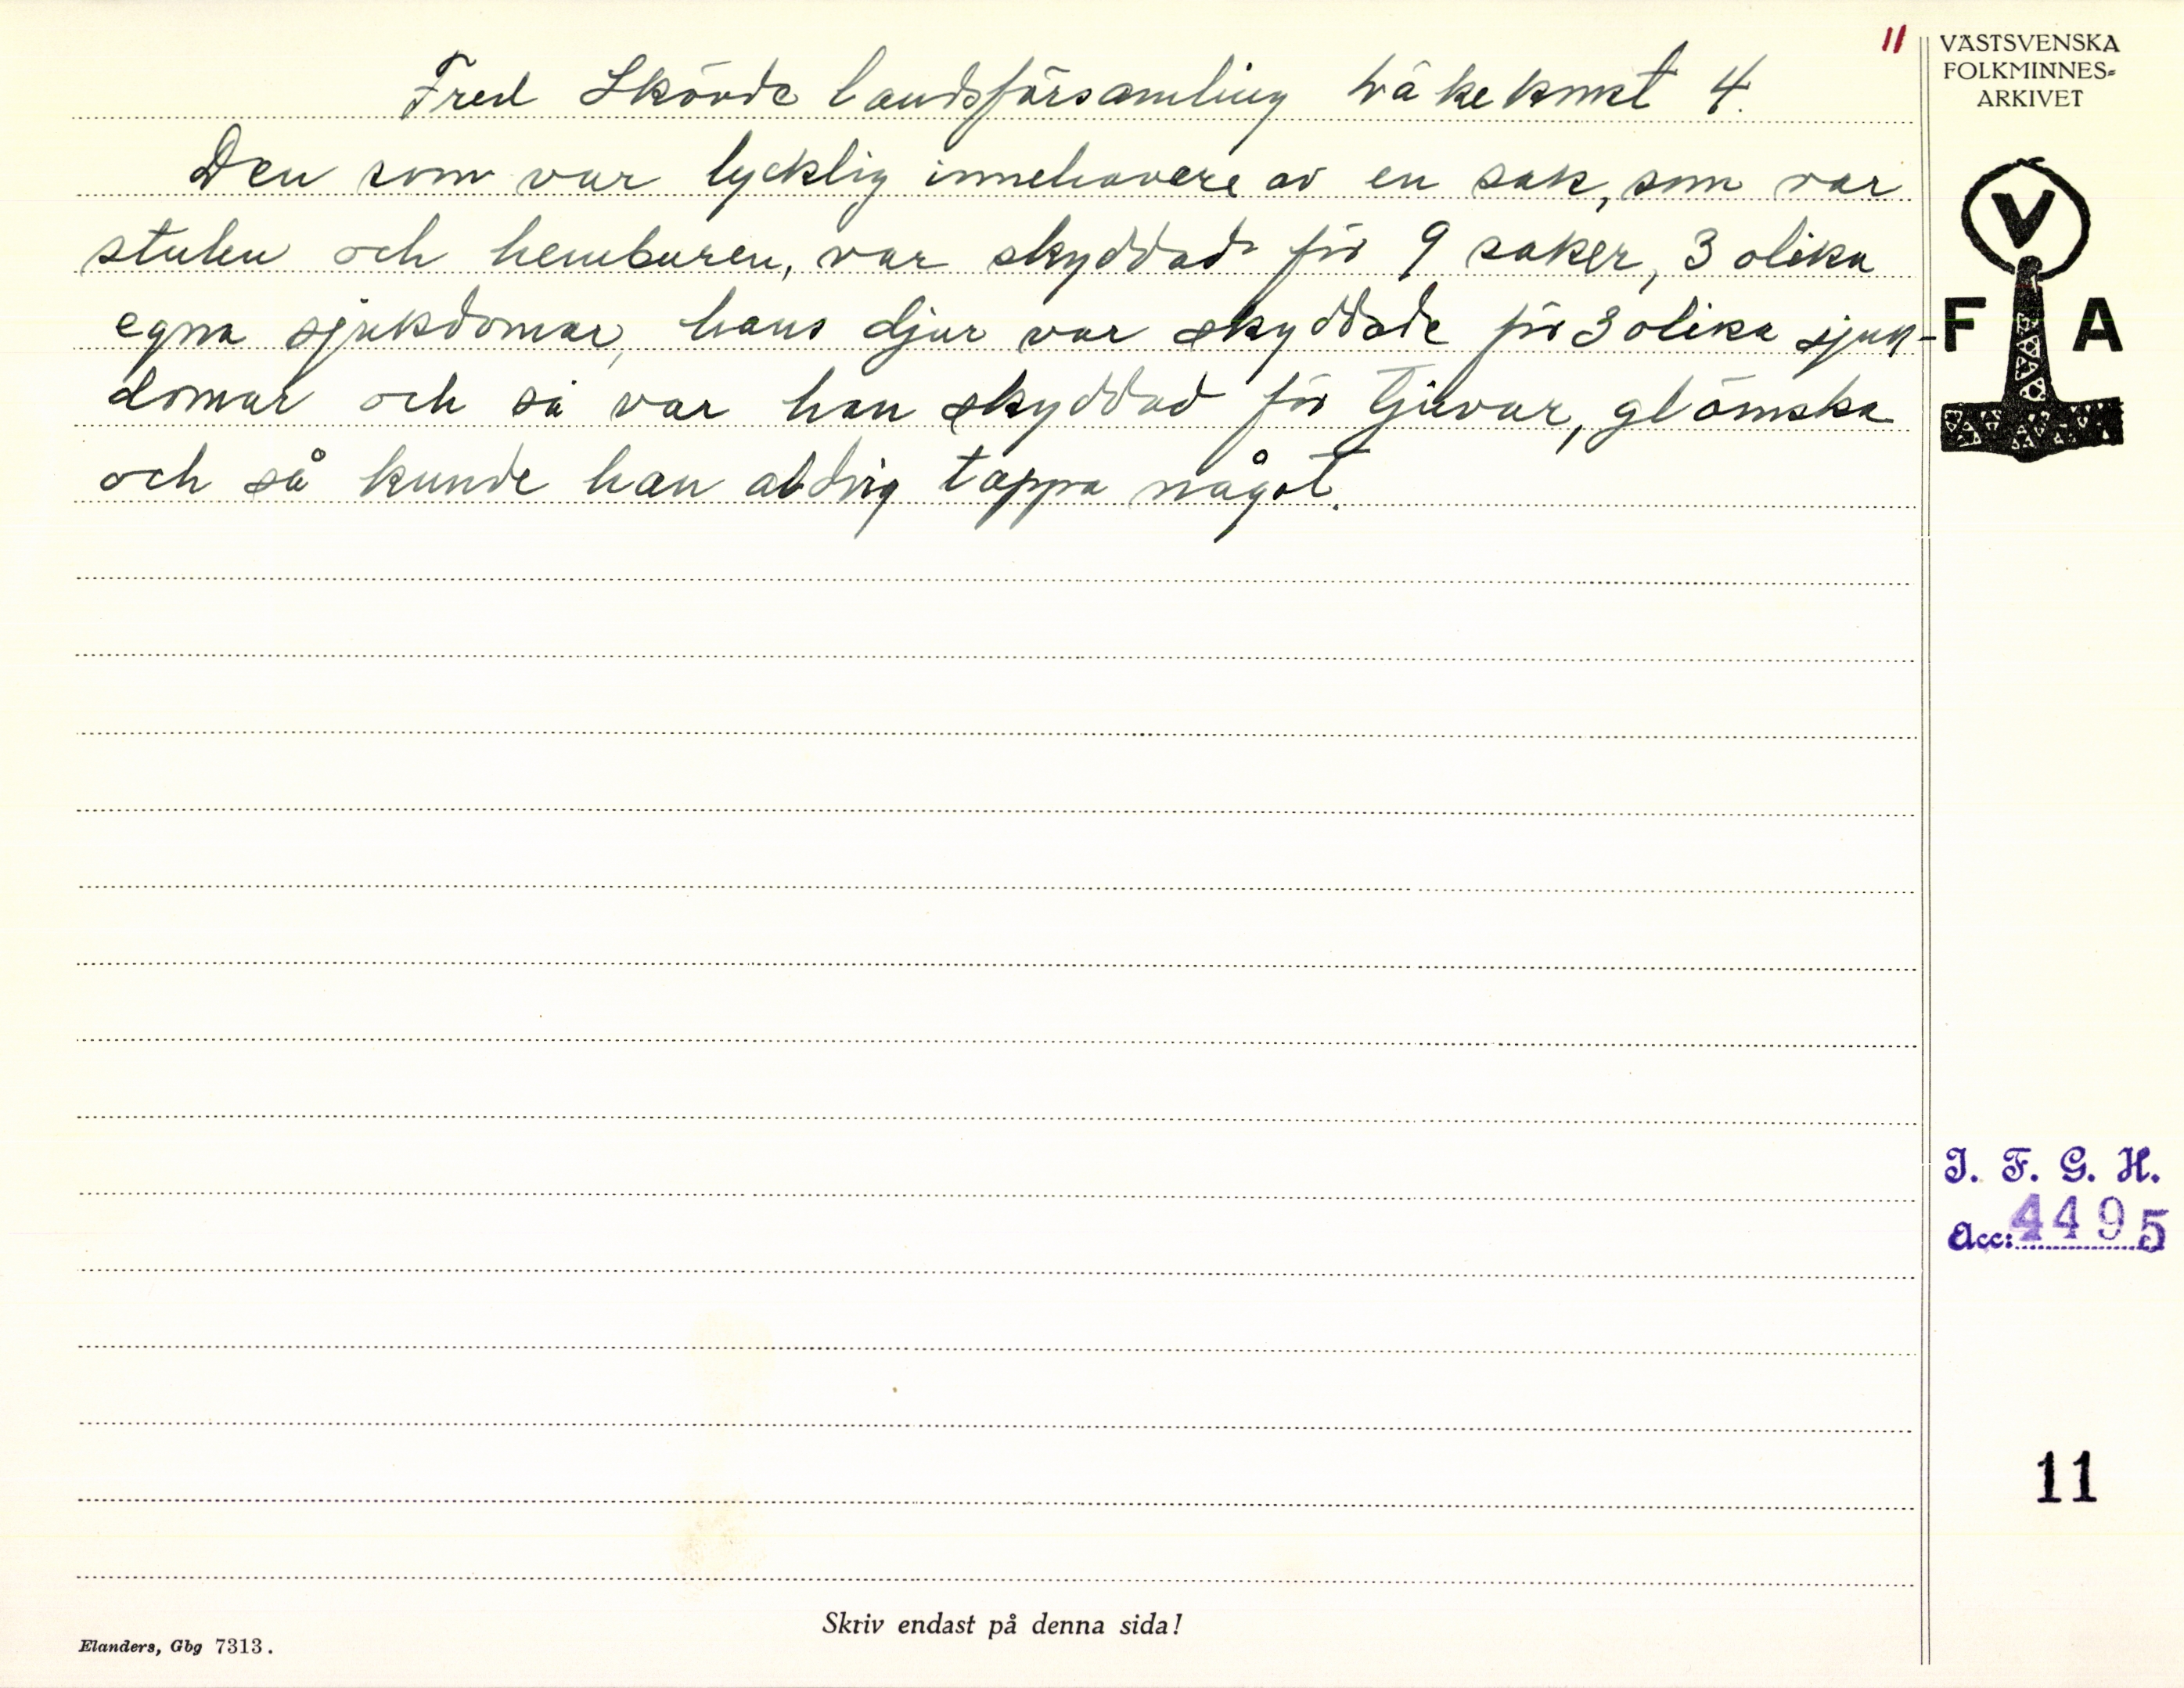 11
Fred Skövde landsförsamling Läkekonst 4.
Den som var lycklig innehavare av en sak, som var
stulen och hemburen, var skyddad för 9 saker, 3 olika
egna sjukdomar, hans djur var skyddade för 3 olika sjuk-
domar och så var han skyddad för tjuvar, glömska
och så kunde han aldrig tappa något.
VÄSTSVENSKA
FOLKMINNES-
ARKIVET
V
F A
I. F. G. H.
Acc: 4495
11
Skriv endast på denna sida!
Elanders, Gbg 7313.